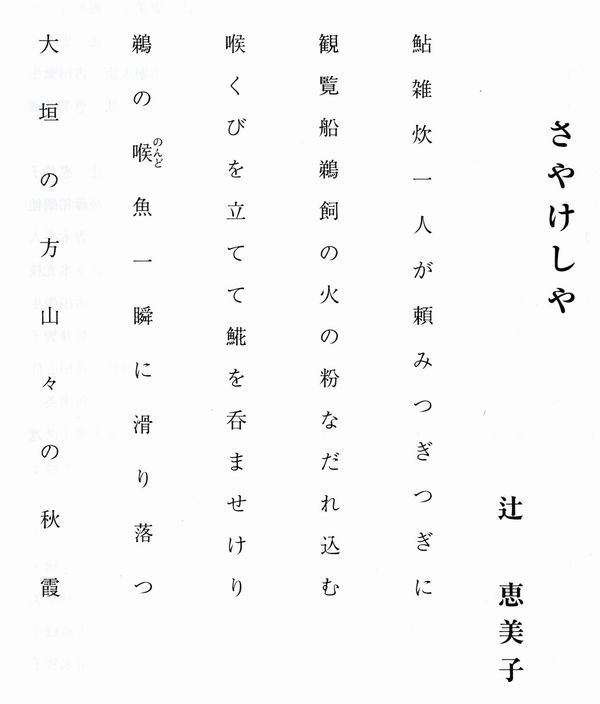 さやけしや
辻 恵美子
鮎雑炊一人が頼みつぎつぎに
観覧船鵜飼の火の粉なだれ込む
喉くびを立てて鯎を呑ませけり
鵜の喉魚一瞬に滑り落つ
のんど
大垣の方山々の秋霞